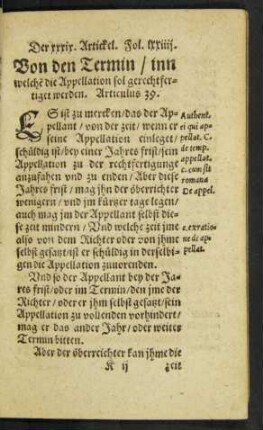 Der xxxix. Artickel. Fol. lxxiiij.
Von den Termin / inn
welchē die Appellation sol gerechtfer-
tiget werden. Articulus 39.
ES ist zu mercken / das der Ap-
pellant / von der zeit / wenn er
seine Appellation einleget /
schüldig ist / bey einer Jahres frist / sein
Appellation zu der rechtfertigunge
anzufahen vnd zu enden / Aber diese
Jahres frist / mag jhn der öberrichter
wenigern / vnd jm kürtzer tage legen /
auch mag jm der Appellant selbst die-
se zeit mindern / Vnd welche zeit jme
also von dem Richter oder von jhme
selbst gesatzt / ist er schüldig in derselbi-
gen die Appellation zuuorenden.
Vnd so der Appellant bey der Ja-
res frist / oder im Termin / den jme der
Richter / oder er jhm selbst gesatzt / sein
Appellation zu vollenden vorhindert /
mag er das ander Jahr / oder weiter
Termin bitten.
Aber der öberreichter kan jhme die
K ij zeit
Authent.
ei qui ap-
pellat. C.
de temp.
appellat.
c. cum sit
romana
De appel.
c. ex ratio-
ne de ap-
pellat.